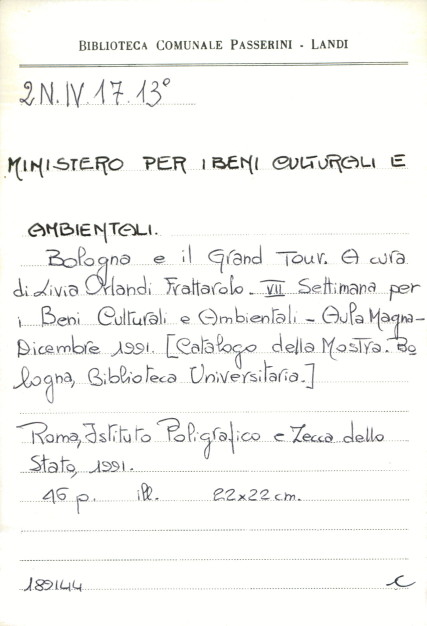 BIBLIOTECA COMUNALE PASSERINI - LANDI
2N.IV.17.13°
MINISTERO PER I BENI CULTURALI E
AMBIENTALI.
Bologna e il Grand Tour. A cura
di Livia Orlandi Frattarolo. VII Settimana per
i Beni Culturali e Ambientali - Aula Magna -
Dicembre 1991. [Catalogo della Mostra. Bo
logna, Biblioteca Universitaria.]
Roma, Istituto Poligrafico e Zecca dello
Stato, 1991.
46 p. ill. 22x22 cm.
189144 C